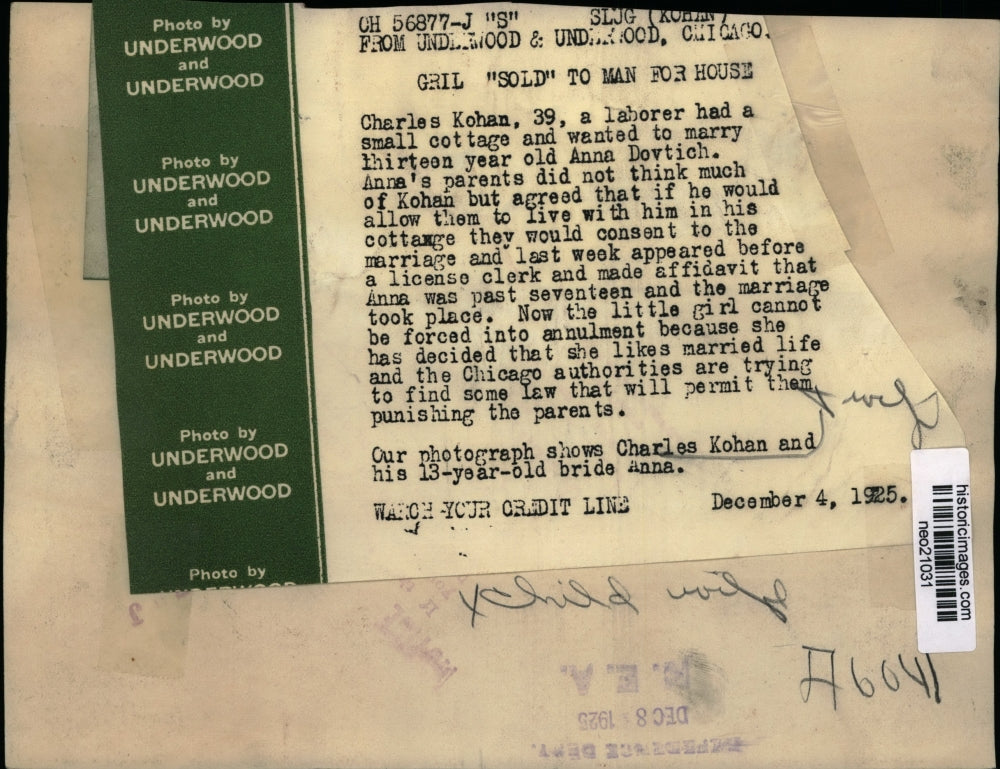 Photo by
UNDERWOOD
and
UNDERWOOD
Photo by
UNDERWOOD
and
UNDERWOOD
Photo by
UNDERWOOD
and
UNDERWOOD
Photo by
UNDERWOOD
and
UNDERWOOD
Photo by
UNDERWOOD
CH 56877-J "S" SLUG (KOHAN)
FROM UNDERWOOD & UNDERWOOD, CHICAGO.
GRIL "SOLD" TO MAN FOR HOUSE
Charles Kohan, 39, a laborer had a
small cottage and wanted to marry
thirteen year old Anna Dovtich.
Anna's parents did not think much
of Kohan but agreed that if he would
allow them to live with him in his
cottaxge they would consent to the
marriage and last week appeared before
a license clerk and made affidavit that
Anna was past seventeen and the marriage
took place. Now the little girl cannot
be forced into annulment because she
has decided that she likes married life
and the Chicago authorities are trying
to find some law that will permit them
punishing the parents.
Our photograph shows Charles Kohan and
his 13-year-old bride Anna.
WATCH YOUR CREDIT LINE December 4, 1925.
historicimages.com
neo21031
Child wives
A6041
N. E. A.
DEC 8 1925
REFERENCE DEPT.